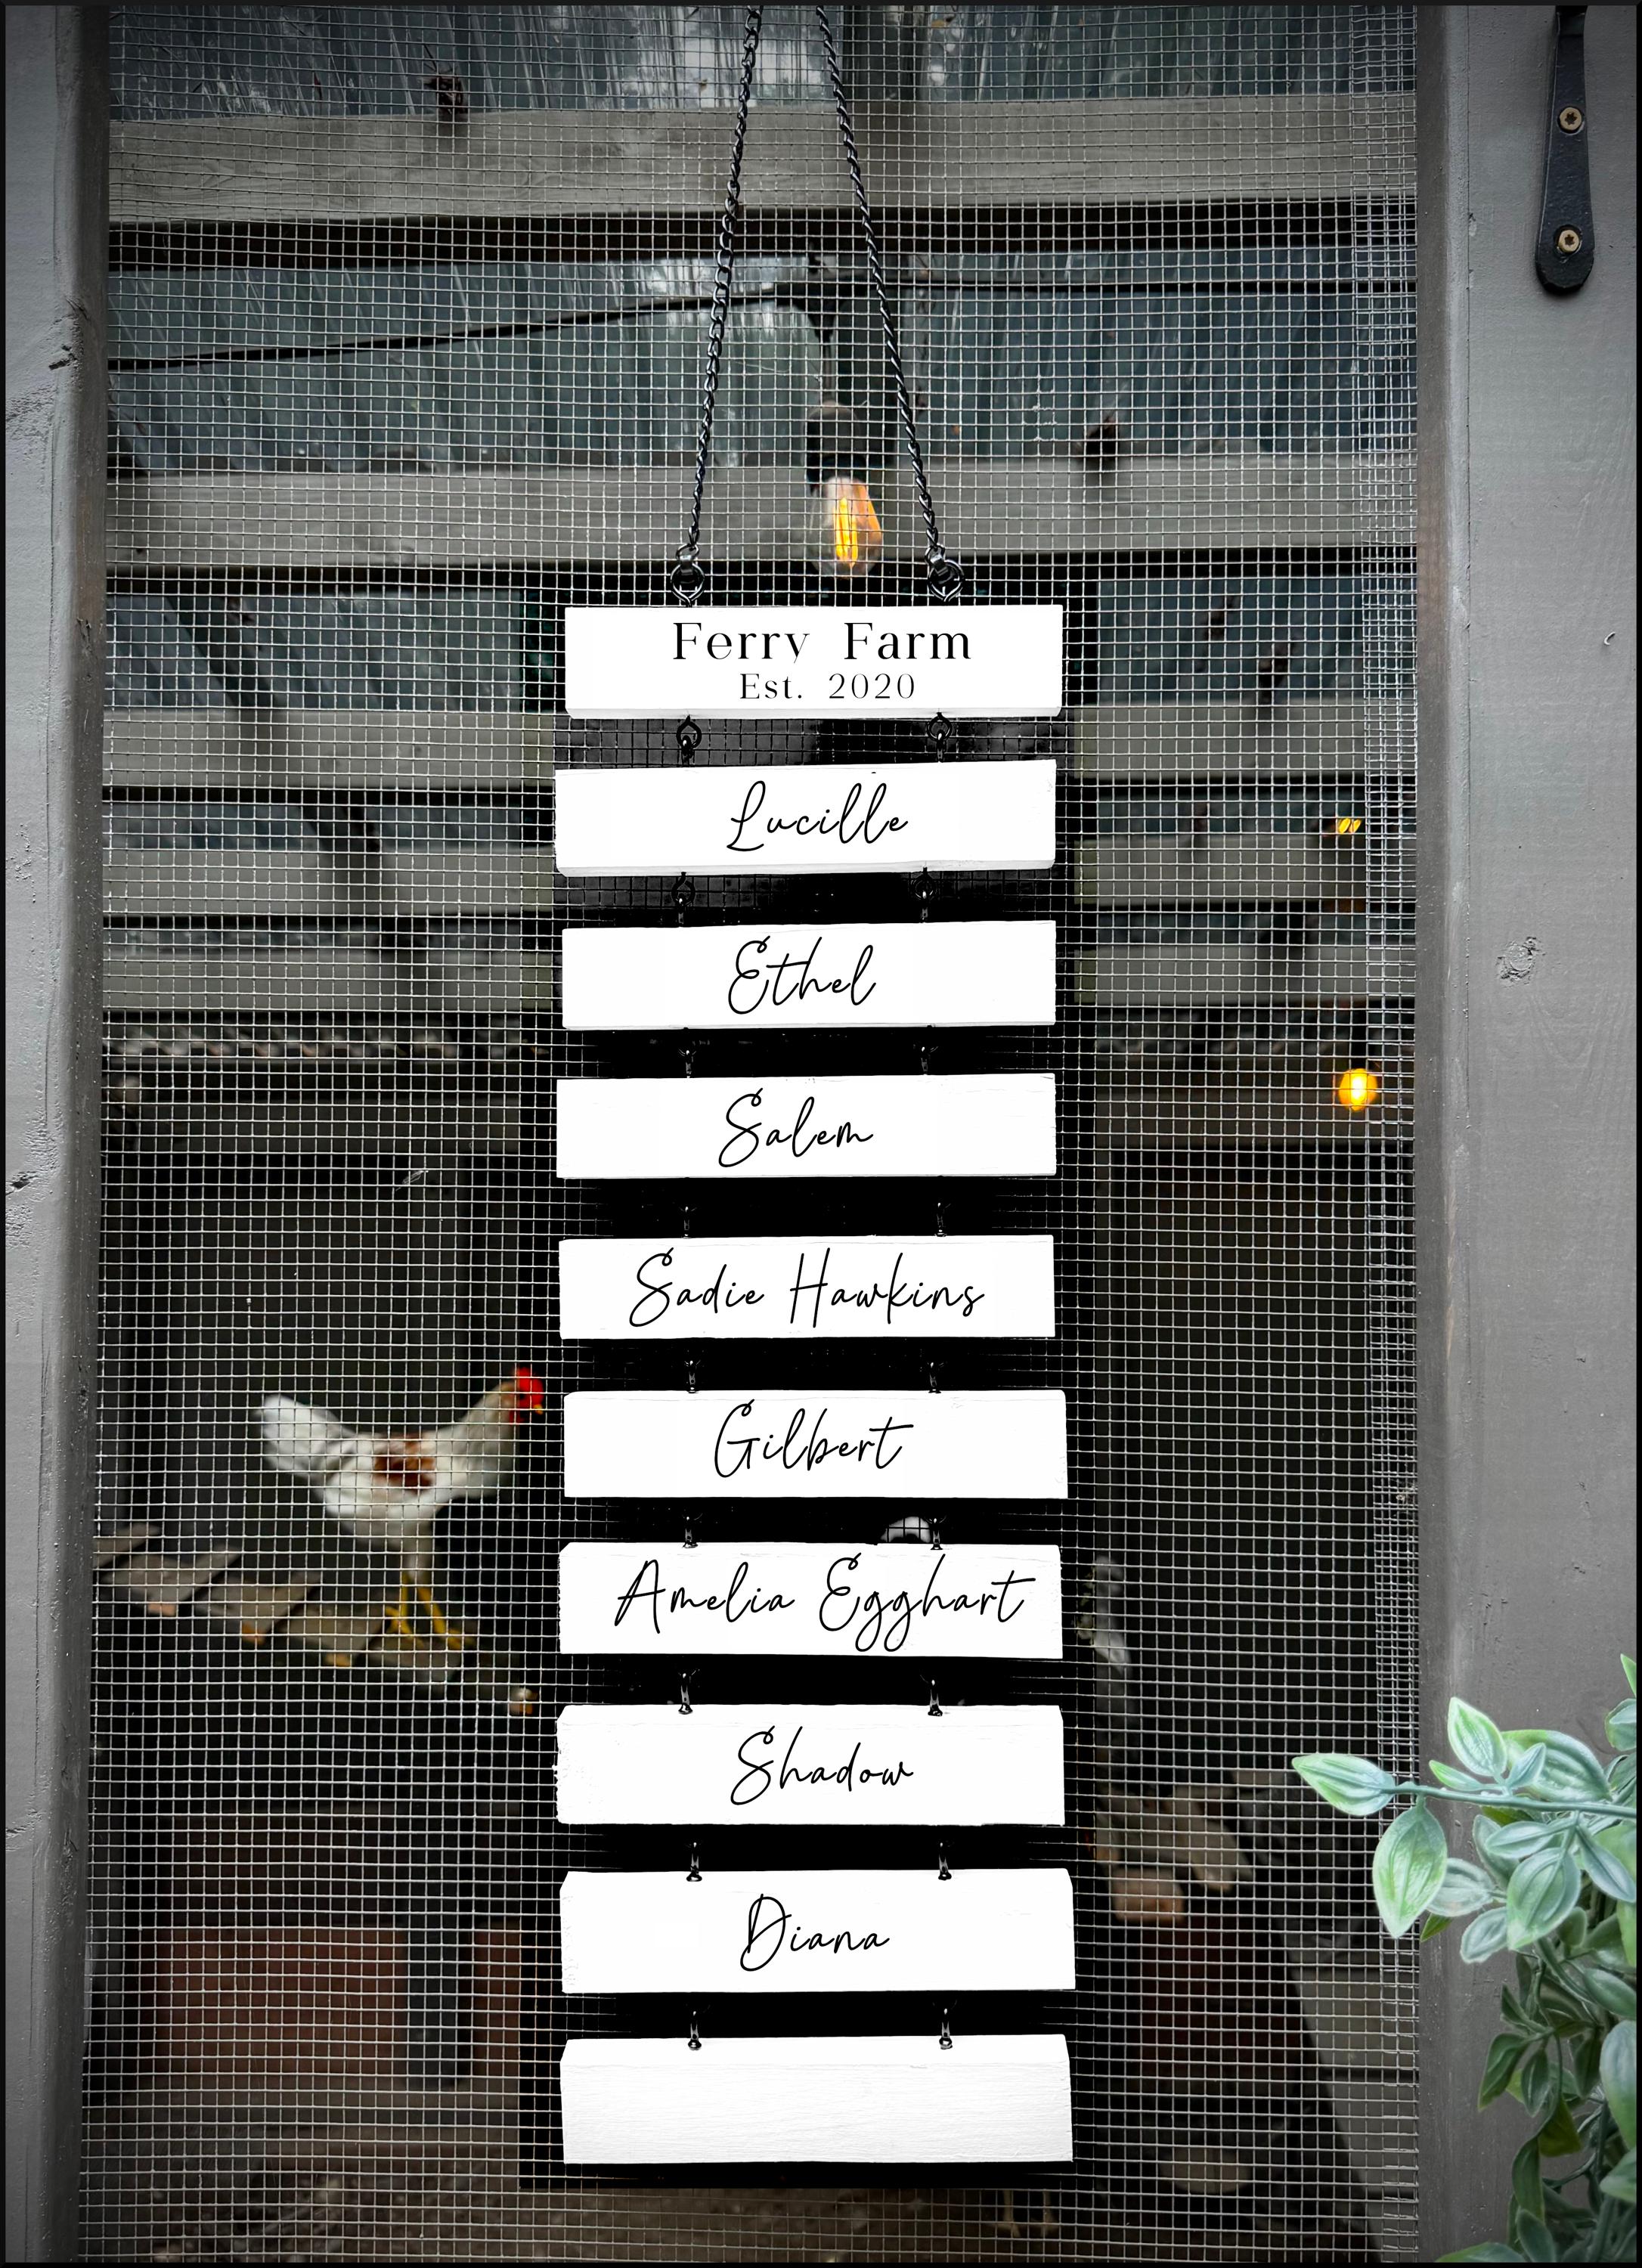 Ferry Farm
Est. 2020
Lucille
Ethel
Salem
Sadie Hawkins
Gilbert
Amelia Egghart
Shadow
Diana